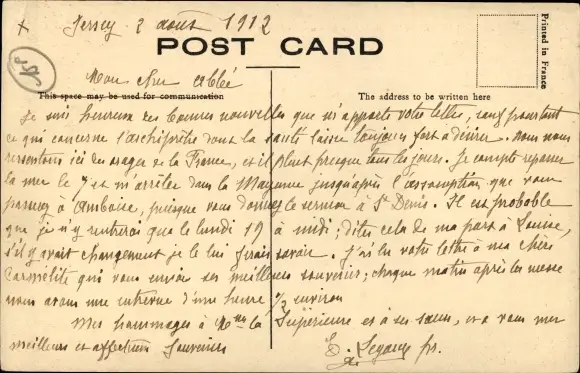 Jersey 2 août 1912
POST CARD
Printed in France
Mon cher Abbé
This space may be used for communication
The address to be written here
Je suis heureux des bonnes nouvelles que m'apporte votre lettre, sauf pourtant
ce qui concerne l'archiprêtre dont la santé laisse toujours fort à désirer. Nous nous
ressentons ici des orages de la France, et il pleut presque tous les jours. Je compte repasser
la mer le 7 et m'arrêter dans la Mayenne jusqu'après l'assomption que vous
passerez à Amboise, puisque vous donnez le sermon à St Denis. Il est probable
que je n'y rentrerai que le lundi 19 à midi; dites cela de ma part à Louise,
s'il y avait changement je le lui ferais savoir. J'ai lu votre lettre à ma chère
Carmélite qui vous envoie ses meilleurs souvenirs; chaque matin après les messe
nous avons une entrevue d'une heure 1/2 environ
Mes hommages à Mme la Supérieure et à ses sœurs, et à vous mes
meilleurs et affectueux souvenirs